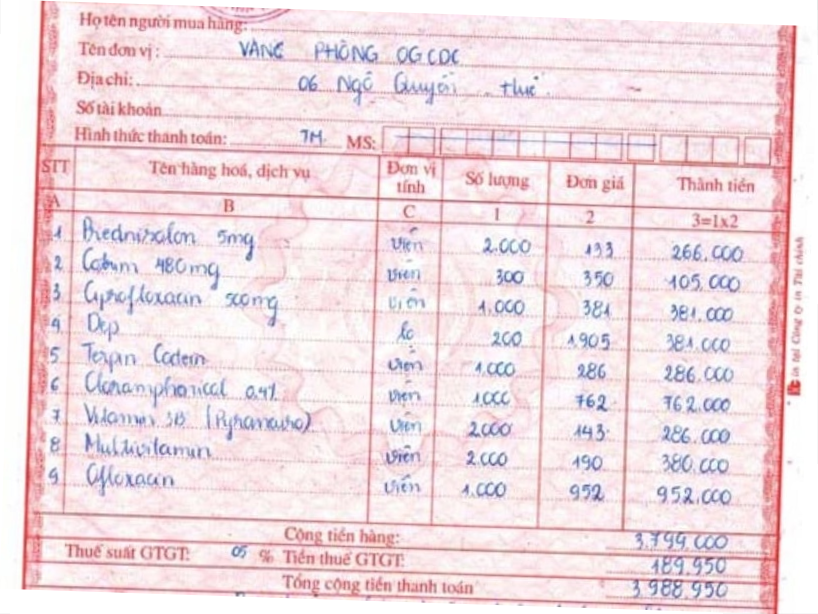 Họ tên người mua hàng:
Tên đơn vị: VĂNG PHÒNG OGCDC
Địa chỉ: 06 Ngô Quyền Huế
Số tài khoản
Hình thức thanh toán: TM. MS:
STT Tên hàng hoá, dịch vụ Đơn vị tính Số lượng Đơn giá Thành tiền
A B C 1 2 3=1x2
1 Prednisolon 5mg viên 2.000 133 266.000
2 480mg viên 300 350 105.000
3 Ciprofloxacin 500mg viên 1.000 381 381.000
4 Dep lọ 200 1.905 381.000
5 Terpin Codein viên 1.000 286 286.000
6 Cloramphenicol 0,4% viên 1000 762 762.000
7 Vitamin 3B viên 2000 143 286.000
8 Multivitamin viên 2.000 190 380.000
9 Ofloxacin viên 1.000 952 952.000
Cộng tiền hàng: 3.799.000
Thuế suất GTGT: 05 % Tiền thuế GTGT: 189.950
Tổng cộng tiền thanh toán 3.988.950
in tại Công ty in Tài chính